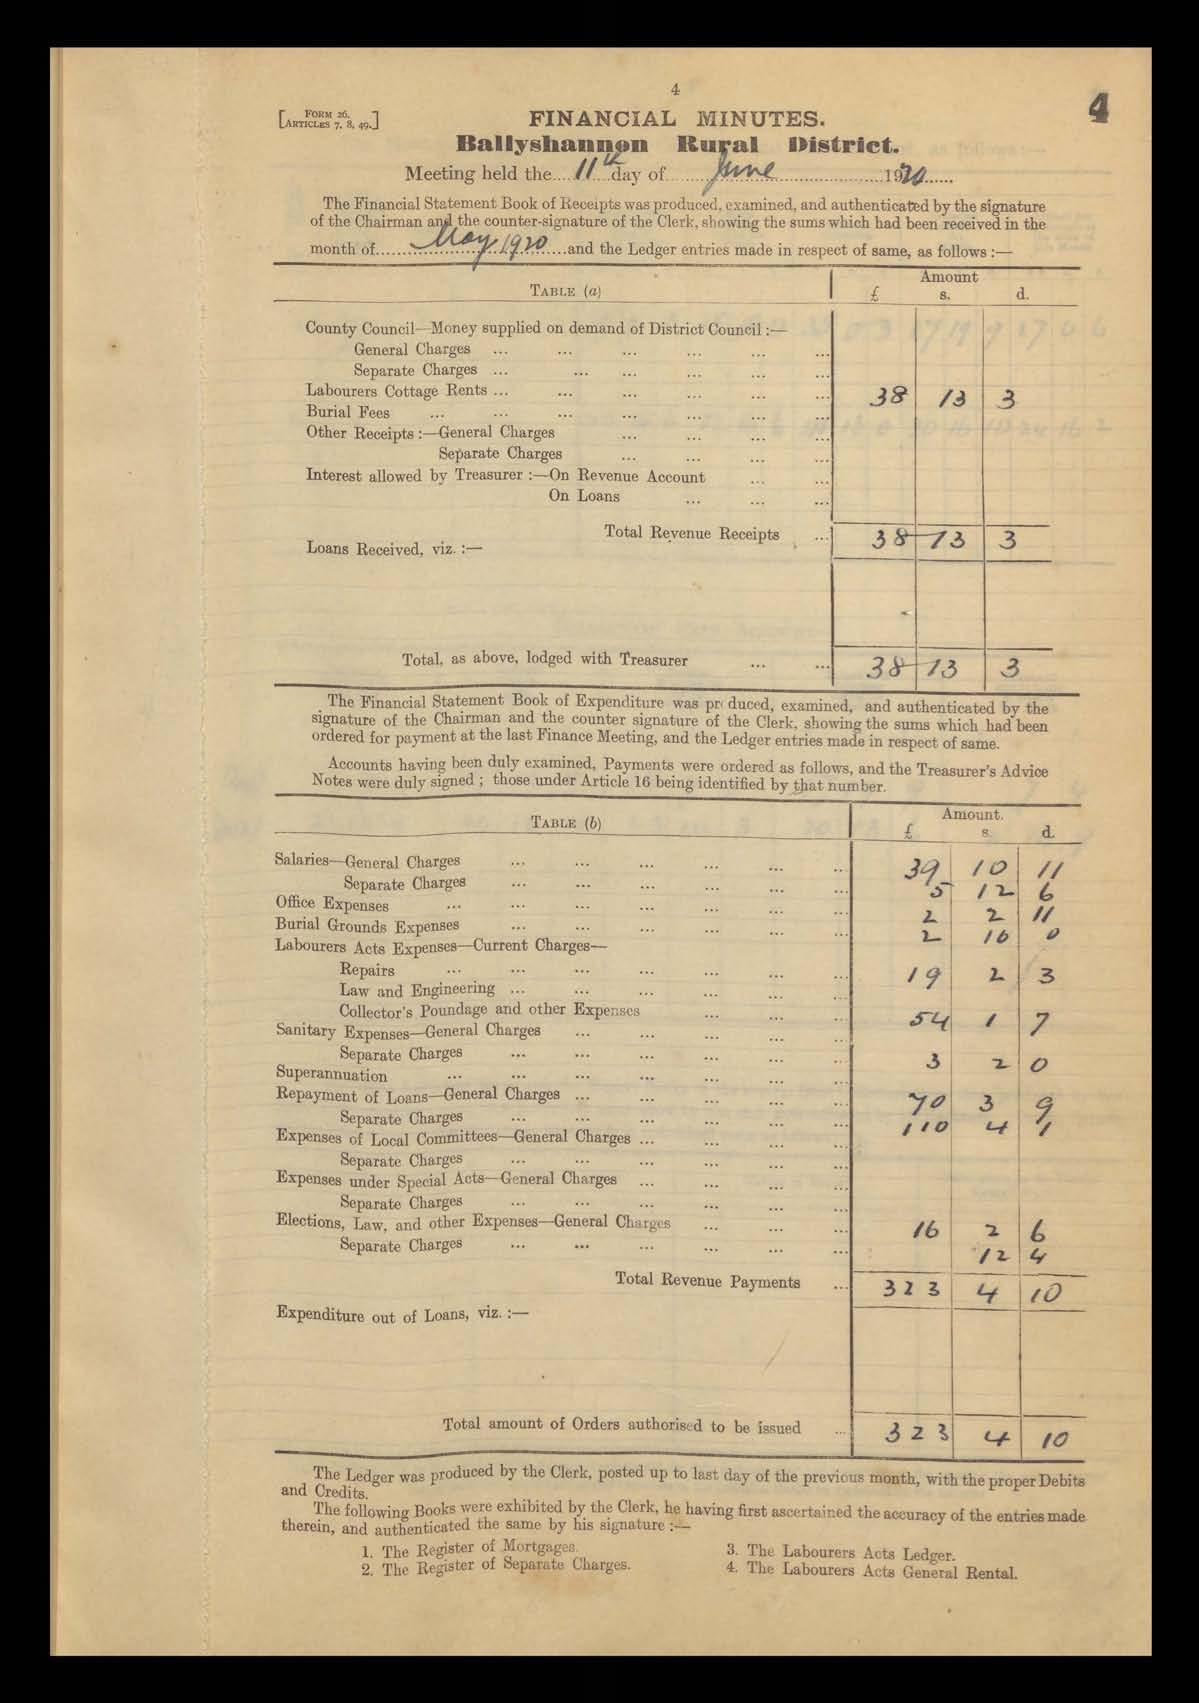 4
4
[FORM 26. ARTICLES 7, 8, 49.]
FINANCIAL MINUTES.
Ballyshannon Rural District.
Meeting held the....11th....day of........June........................1920......
The Financial Statement Book of Receipts was produced, examined, and authenticated by the signature
of the Chairman and the counter-signature of the Clerk, showing the sums which had been received in the
month of........May 1920........and the Ledger entries made in respect of same, as follows :—
TABLE (a) Amount £ s. d.
County Council—Money supplied on demand of District Council :—
General Charges ... ... ... ... ... ...
Separate Charges ... ... ... ... ... ...
Labourers Cottage Rents ... ... ... ... ... ... 38 13 3
Burial Fees ... ... ... ... ... ... ...
Other Receipts :—General Charges ... ... ... ...
Separate Charges ... ... ... ...
Interest allowed by Treasurer :—On Revenue Account ... ...
On Loans ... ... ...
Total Revenue Receipts ... 38 13 3
Loans Received, viz. :—
Total, as above, lodged with Treasurer ... ... 38 13 3
The Financial Statement Book of Expenditure was produced, examined, and authenticated by the
signature of the Chairman and the counter signature of the Clerk, showing the sums which had been
ordered for payment at the last Finance Meeting, and the Ledger entries made in respect of same.
Accounts having been duly examined, Payments were ordered as follows, and the Treasurer's Advice
Notes were duly signed ; those under Article 16 being identified by that number.
TABLE (b) Amount. £ s. d.
Salaries—General Charges ... ... ... ... ... ... 39 10 11
Separate Charges ... ... ... ... ... ... 5 12 6
Office Expenses ... ... ... ... ... ... ... 2 2 11
Burial Grounds Expenses ... ... ... ... ... ... 2 10 0
Labourers Acts Expenses—Current Charges—
Repairs ... ... ... ... ... ... ... 19 2 3
Law and Engineering ... ... ... ... ... ...
Collector's Poundage and other Expenses ... ... ... 54 1 7
Sanitary Expenses—General Charges ... ... ... ... ...
Separate Charges ... ... ... ... ... ... 3 2 0
Superannuation ... ... ... ... ... ... ...
Repayment of Loans—General Charges ... ... ... ... ... 70 3 9
Separate Charges ... ... ... ... ... ... 110 4 1
Expenses of Local Committees—General Charges ... ... ... ...
Separate Charges ... ... ... ... ... ...
Expenses under Special Acts—General Charges ... ... ... ...
Separate Charges ... ... ... ... ... ...
Elections, Law, and other Expenses—General Charges ... ... ... 16 2 6
Separate Charges ... ... ... ... ... ... 12 4
Total Revenue Payments ... 323 4 10
Expenditure out of Loans, viz. :—
Total amount of Orders authorised to be issued ... 323 4 10
The Ledger was produced by the Clerk, posted up to last day of the previous month, with the proper Debits
and Credits.
The following Books were exhibited by the Clerk, he having first ascertained the accuracy of the entries made
therein, and authenticated the same by his signature :—
1. The Register of Mortgages. 3. The Labourers Acts Ledger.
2. The Register of Separate Charges. 4. The Labourers Acts General Rental.